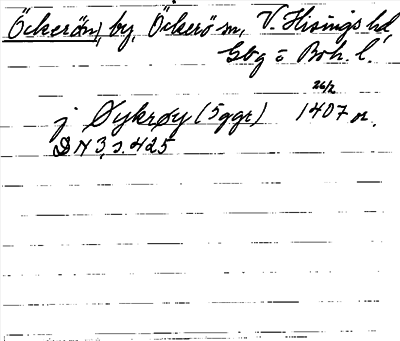 Öckerön, by, Öckerö sn, V. Hisings hd,
Gbg o Boh. l.
26/2
j Øykrøy (5 ggr) 1407 or.
DN 3, s. 425